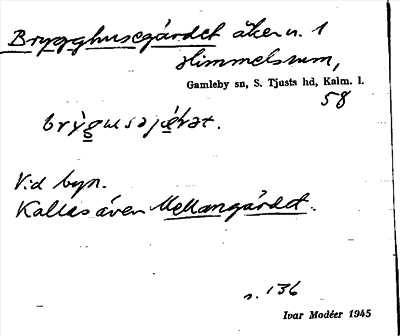 Brygghusegärdet åker n. 1
Himmelsrum,
Gamleby sn, S. Tjusts hd, Kalm. l.
58
Vid byn.
Kallas även Mellangärdet.
s. 136
Ivar Modéer 1945